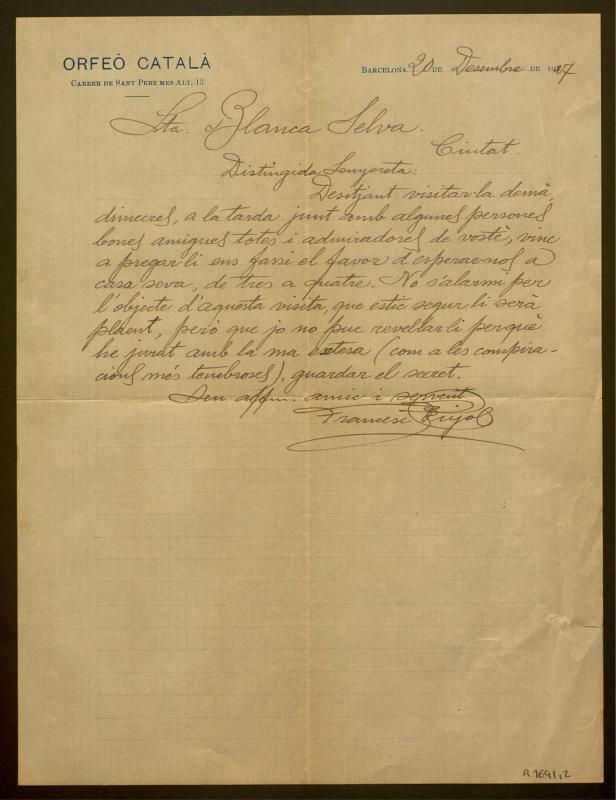 ORFEÓ CATALÀ
CARRER DE SANT PERE MES ALT, 13
BARCELONA, 20 DE Desembre DE 1927
Sta. Blanca Selva.
Ciutat.
Distingida Senyoreta:
Desitjant visitar-la demà,
dimecres, a la tarda junt amb algunes persones
bones amigues totes i admiradores de vostè, vinc
a pregar-li ens fassi el favor d'esperar-nos a
casa seva, de tres a quatre. No s'alarmi per
l'objecte d'aquesta visita, que estic segur li serà
plaent, però que jo no puc revellar-li perquè
he jurat amb la ma extesa (com a les conspira-
cions més tenebroses), guardar el secret.
Seu affm. amic i servent
Francesc Pujol
R 1691,2